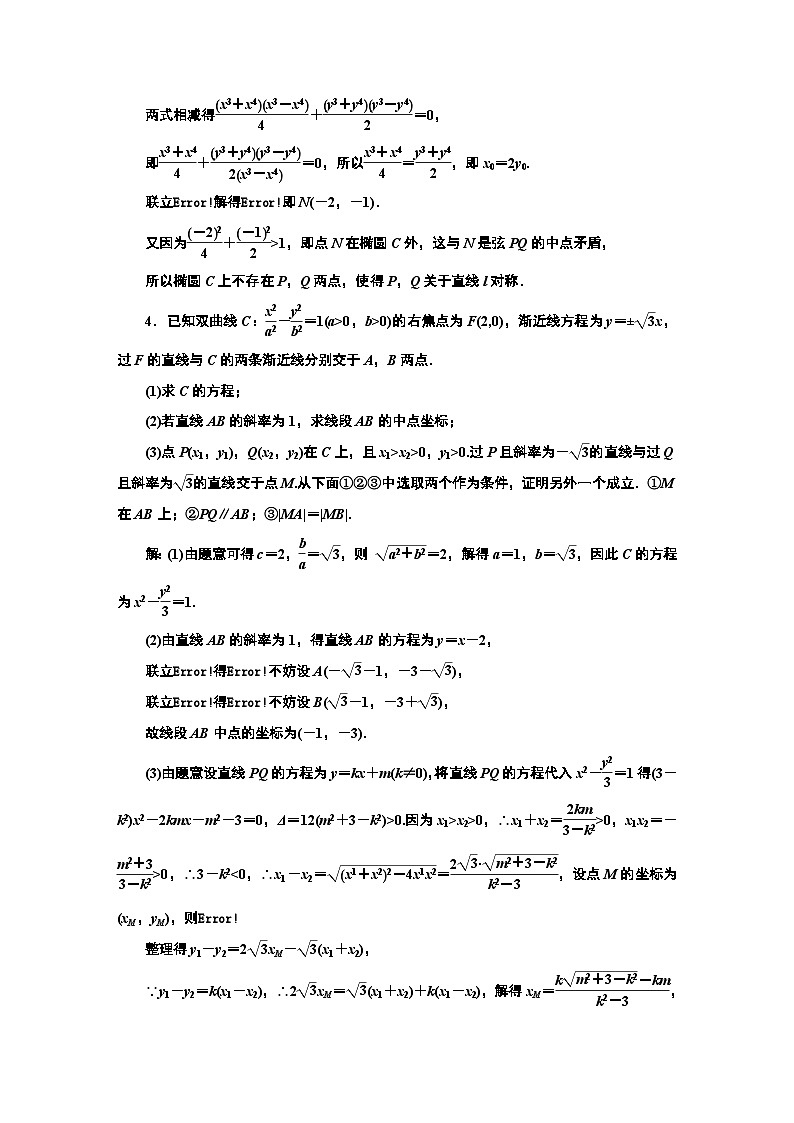 两式相减得(x3+x4)(x3-x4)/4+(y3+y4)(y3-y4)/2=0,
即x3+x4/4+(y3+y4)(y3-y4)/2(x3-x4)=0,所以x3+x4/4=y3+y4/2,即 x₀=2y₀.
联立Error!解得Error!即 N(-2,-1).
又因为(-2)2/4+(-1)2/2>1,即点 N 在椭圆 C 外,这与 N 是弦 PQ 的中点矛盾,
所以椭圆 C 上不存在 P,Q 两点,使得 P,Q 关于直线 l 对称.
4.已知双曲线 C:x2/a2-y2/b2=1(a>0,b>0)的右焦点为 F(2,0),渐近线方程为 y=±√3x,
过 F 的直线与 C 的两条渐近线分别交于 A,B 两点.
(1)求 C 的方程;
(2)若直线 AB 的斜率为 1,求线段 AB 的中点坐标;
(3)点 P(x₁,y₁),Q(x₂,y₂)在 C 上,且 x₁>x₂>0,y₁>0.过 P 且斜率为-√3的直线与过 Q
且斜率为√3的直线交于点 M.从下面①②③中选取两个作为条件,证明另外一个成立.①M
在 AB 上;②PQ∥AB;③|MA|=|MB|.
解:(1)由题意可得 c=2,b/a=√3,则 √a2+b2=2,解得 a=1,b=√3,因此 C 的方程
为 x²-y2/3=1.
(2)由直线 AB 的斜率为 1,得直线 AB 的方程为 y=x-2,
联立Error!得Error!不妨设 A(-√3-1,-3-√3),
联立Error!得Error!不妨设 B(√3-1,-3+√3),
故线段 AB 中点的坐标为(-1,-3).
(3)由题意设直线 PQ 的方程为 y=kx+m(k≠0),将直线 PQ 的方程代入 x²-y2/3=1 得(3-
k²)x²-2kmx-m²-3=0,Δ=12(m²+3-k²)>0.因为 x₁>x₂>0,∴x₁+x₂=2km/3-k2>0,x₁x₂=-
m2+3/3-k2>0,∴3-k²<0,∴x₁-x₂=√(x1+x2)2-4x1x2=2√3·√m2+3-k2/k2-3,设点 M 的坐标为
(x_M,y_M),则Error!
整理得 y₁-y₂=2√3x_M-√3(x₁+x₂),
∵y₁-y₂=k(x₁-x₂),∴2√3x_M=√3(x₁+x₂)+k(x₁-x₂),解得 x_M=k√m2+3-k2-km/k2-3,